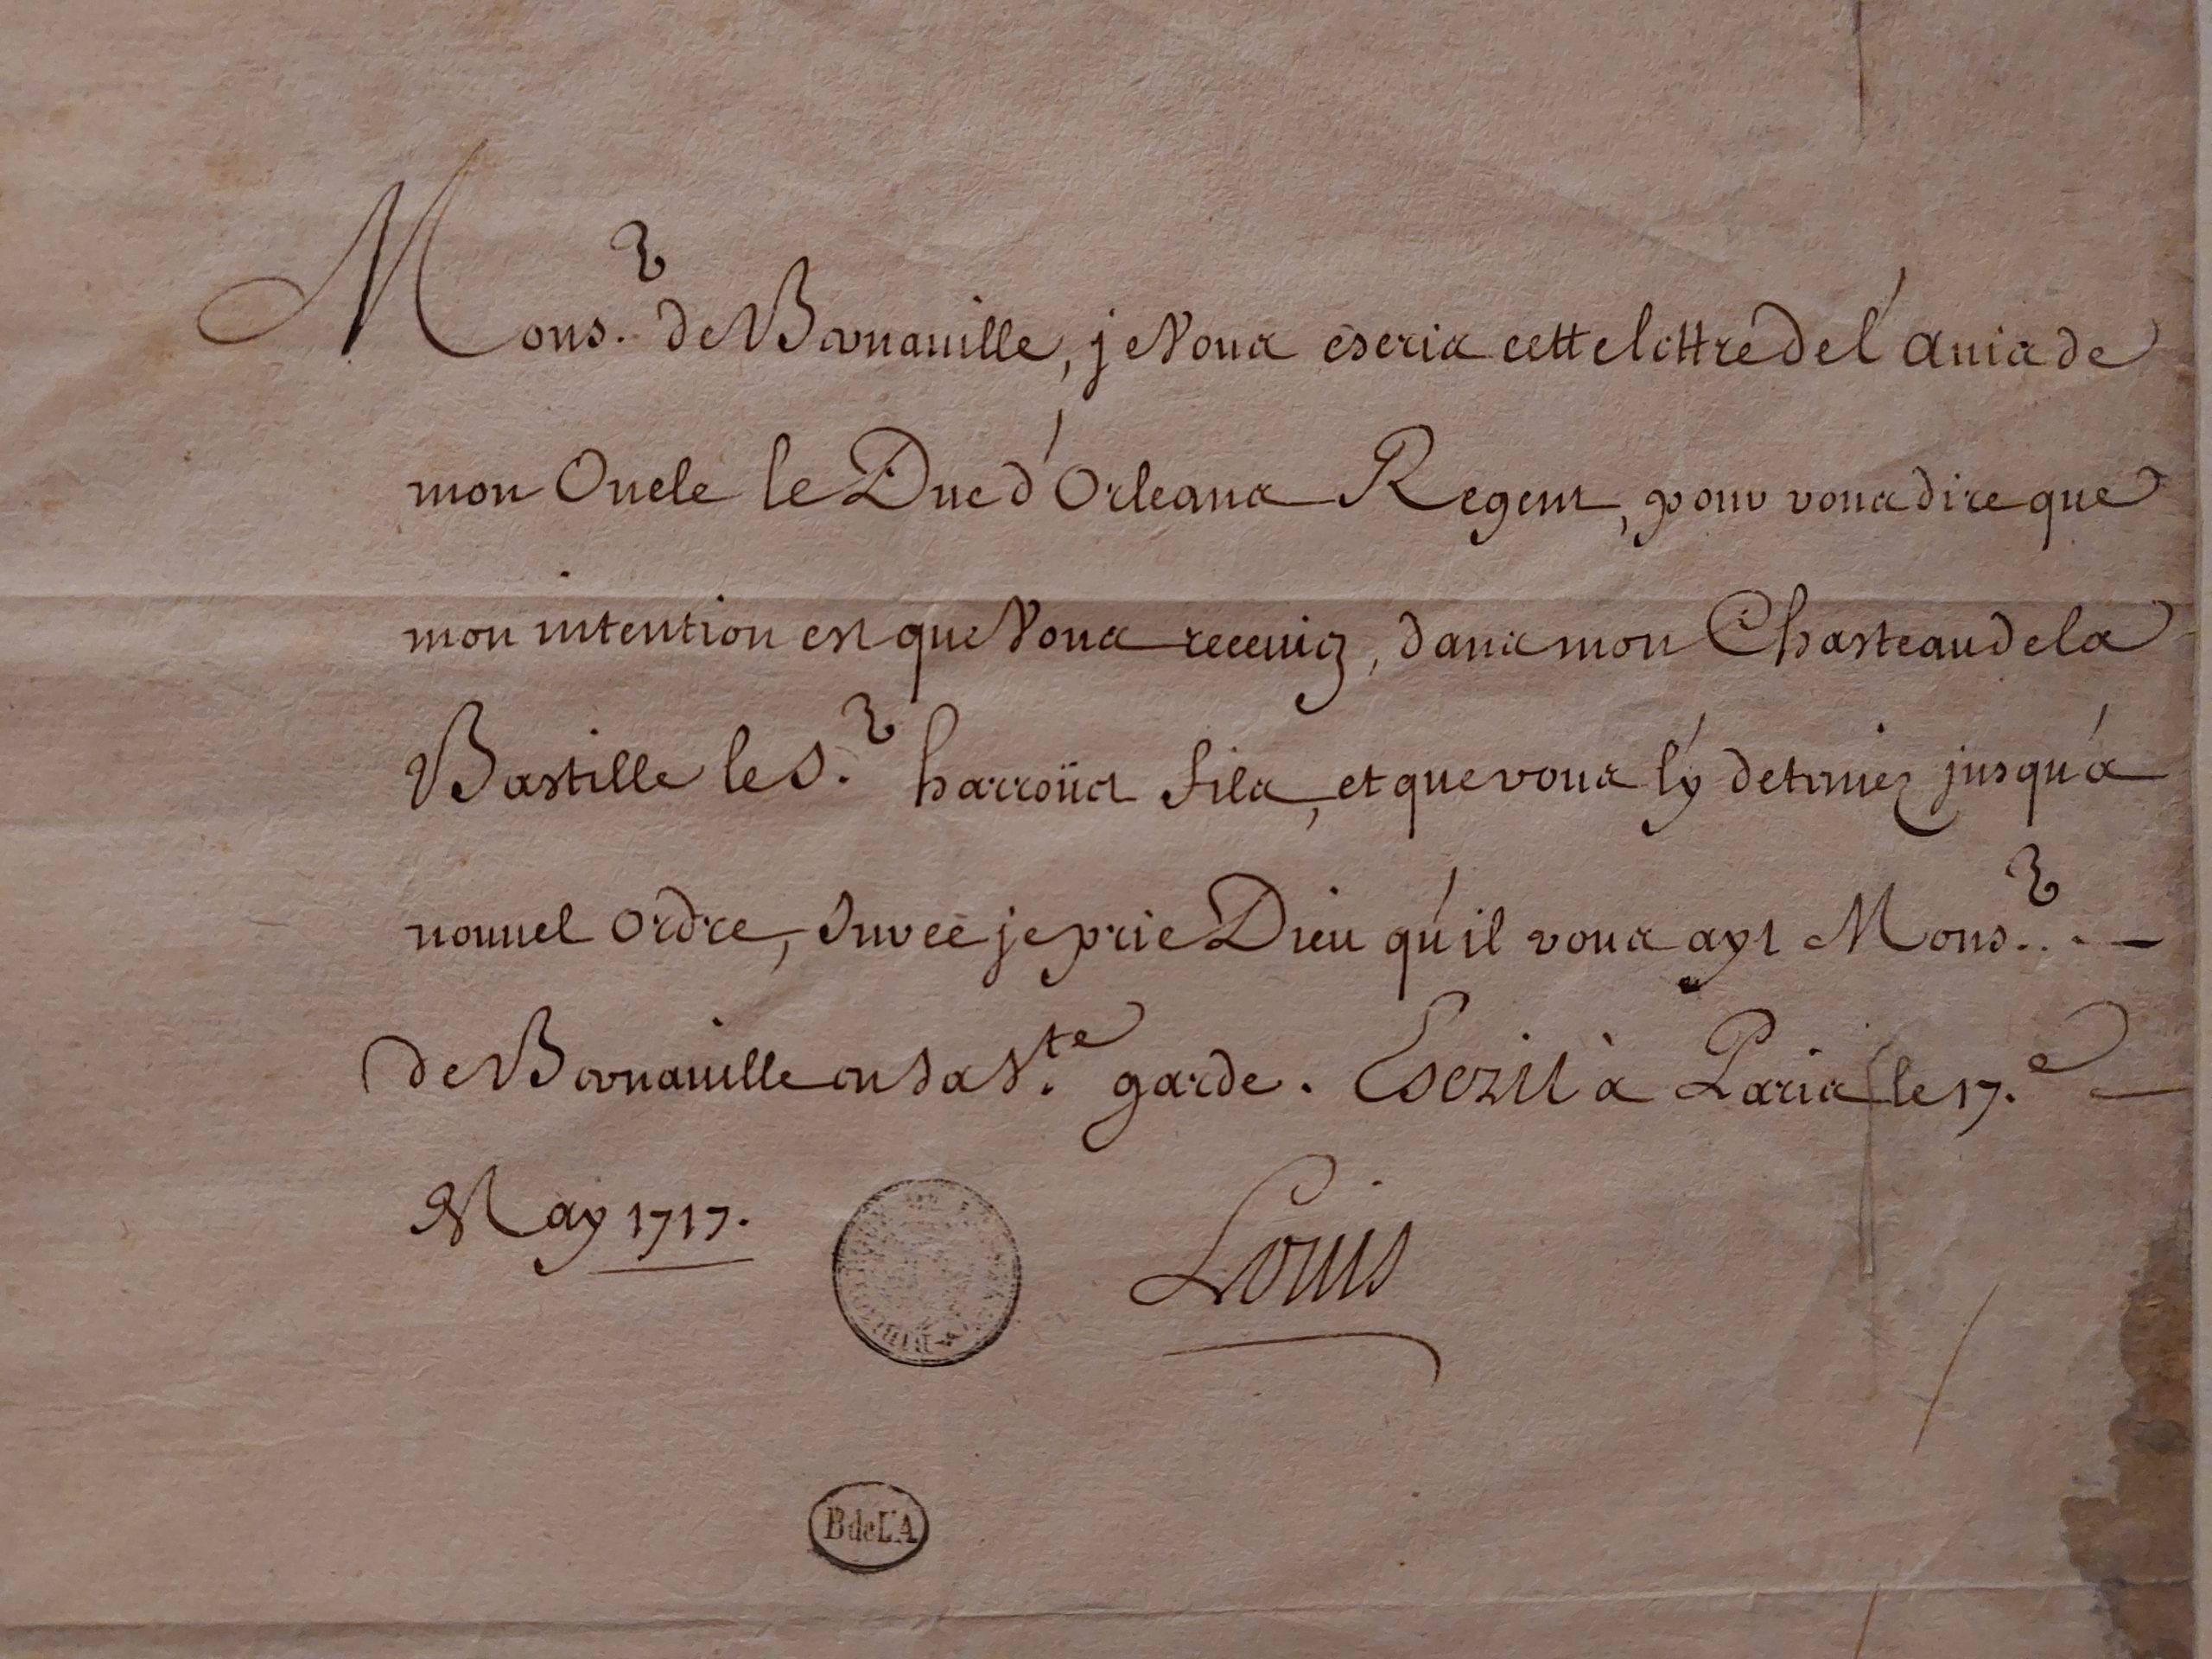 Mons.r de Bernauille, je Vous escris cette lettre de l'auis de
mon Oncle le Duc d'Orleans Regent, pour vous dire que
mon intention est que Vous receuiez, dans mon Chasteau de la
Bastille le S.r harroüet fils, et que vous l'y deteniez jusqu'a
nouuel ordre, Sur ce je prie Dieu qu'il vous ayt Mons.r
de Bernauille en sa S.te garde. Escrit à Paris le 17.e
May 1717.
Louis
BdeL'A